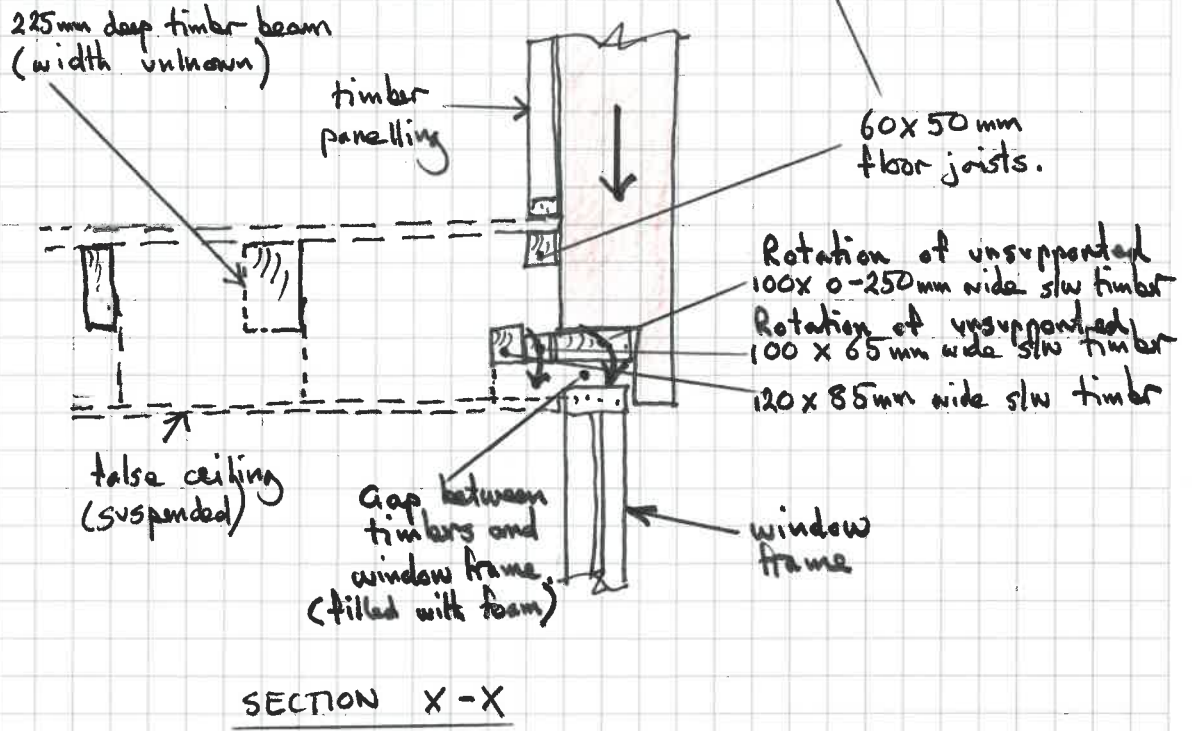 225mm deep timber beam
(width unknown)
timber
panelling
60 x 50 mm
floor joists.
Rotation of unsupported
100 x 0-250mm wide s/w timber
Rotation of unsupported
100 x 65mm wide s/w timber
120 x 85mm wide s/w timber
false ceiling
(suspended)
Gap between
timbers and
window frame
(filled with foam)
window
frame
SECTION X-X